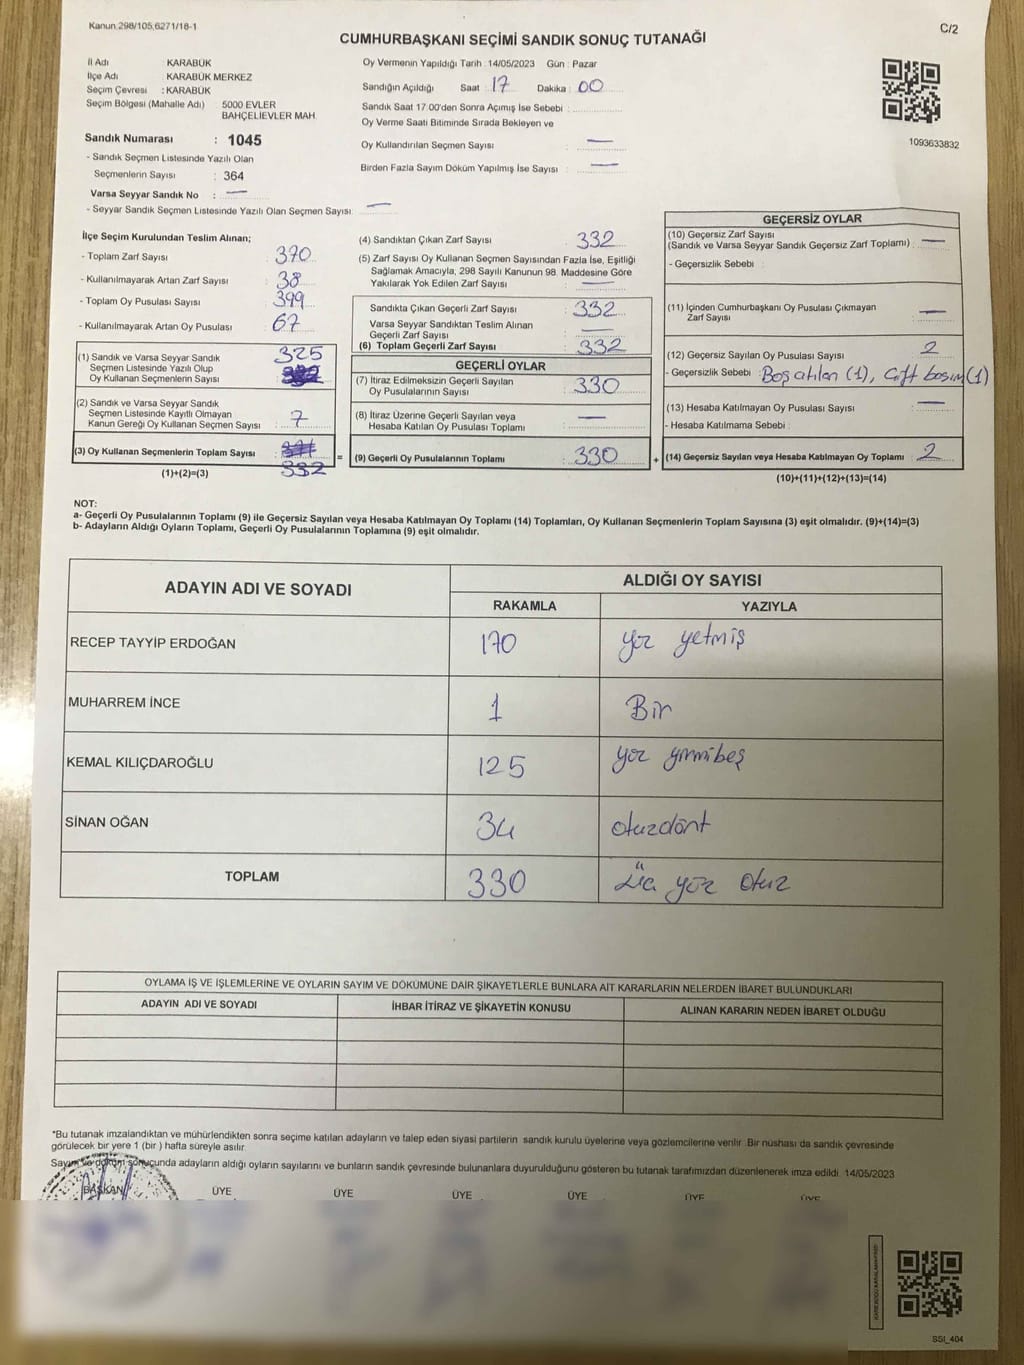 Kanun 298/105,6271/18-1
C/2
CUMHURBAŞKANI SEÇİMİ SANDIK SONUÇ TUTANAĞI
İl Adı : KARABÜK
İlçe Adı : KARABÜK MERKEZ
Seçim Çevresi : KARABÜK
Seçim Bölgesi (Mahalle Adı) 5000 EVLER
BAHÇELİEVLER MAH.
Sandık Numarası : 1045
- Sandık Seçmen Listesinde Yazılı Olan
Seçmenlerin Sayısı : 364
Varsa Seyyar Sandık No : —
- Seyyar Sandık Seçmen Listesinde Yazılı Olan Seçmen Sayısı: —
Oy Vermenin Yapıldığı Tarih : 14/05/2023 Gün : Pazar
Sandığın Açıldığı Saat : 17 Dakika : 00
Sandık Saat 17:00'den Sonra Açımış İse Sebebi :
Oy Verme Saati Bitiminde Sırada Bekleyen ve
Oy Kullandırılan Seçmen Sayısı : —
Birden Fazla Sayım Döküm Yapılmış İse Sayısı : —
1093633832
İlçe Seçim Kurulundan Teslim Alınan;
- Toplam Zarf Sayısı : 370
- Kullanılmayarak Artan Zarf Sayısı : 38
- Toplam Oy Pusulası Sayısı : 399
- Kullanılmayarak Artan Oy Pusulası : 67
(1) Sandık ve Varsa Seyyar Sandık
Seçmen Listesinde Yazılı Olup
Oy Kullanan Seçmenlerin Sayısı : 325
(2) Sandık ve Varsa Seyyar Sandık
Seçmen Listesinde Kayıtlı Olmayan
Kanun Gereği Oy Kullanan Seçmen Sayısı : 7
(3) Oy Kullanan Seçmenlerin Toplam Sayısı : 332
(1)+(2)=(3)
=
(4) Sandıktan Çıkan Zarf Sayısı : 332
(5) Zarf Sayısı Oy Kullanan Seçmen Sayısından Fazla İse, Eşitliği
Sağlamak Amacıyla, 298 Sayılı Kanunun 98. Maddesine Göre
Yakılarak Yok Edilen Zarf Sayısı : —
Sandıkta Çıkan Geçerli Zarf Sayısı : 332
Varsa Seyyar Sandıktan Teslim Alınan
Geçerli Zarf Sayısı : —
(6) Toplam Geçerli Zarf Sayısı : 332
GEÇERLİ OYLAR
(7) İtiraz Edilmeksizin Geçerli Sayılan
Oy Pusulalarının Sayısı : 330
(8) İtiraz Üzerine Geçerli Sayılan veya
Hesaba Katılan Oy Pusulası Toplamı : —
(9) Geçerli Oy Pusulalarının Toplamı : 330
+
GEÇERSİZ OYLAR
(10) Geçersiz Zarf Sayısı
(Sandık ve Varsa Seyyar Sandık Geçersiz Zarf Toplamı) : —
- Geçersizlik Sebebi :
(11) İçinden Cumhurbaşkanı Oy Pusulası Çıkmayan
Zarf Sayısı : —
(12) Geçersiz Sayılan Oy Pusulası Sayısı : 2
- Geçersizlik Sebebi : Boş atılan (1), Çift basım (1)
(13) Hesaba Katılmayan Oy Pusulası Sayısı : —
- Hesaba Katılmama Sebebi :
(14) Geçersiz Sayılan veya Hesaba Katılmayan Oy Toplamı : 2
(10)+(11)+(12)+(13)=(14)
NOT:
a- Geçerli Oy Pusulalarının Toplamı (9) ile Geçersiz Sayılan veya Hesaba Katılmayan Oy Toplamı (14) Toplamları, Oy Kullanan Seçmenlerin Toplam Sayısına (3) eşit olmalıdır. (9)+(14)=(3)
b- Adayların Aldığı Oyların Toplamı, Geçerli Oy Pusulalarının Toplamına (9) eşit olmalıdır.
ADAYIN ADI VE SOYADI ALDIĞI OY SAYISI
RAKAMLA YAZIYLA
RECEP TAYYİP ERDOĞAN 170 yüz yetmiş
MUHARREM İNCE 1 Bir
KEMAL KILIÇDAROĞLU 125 yüz yirmibeş
SİNAN OĞAN 34 otuzdört
TOPLAM 330 Üç yüz otuz
OYLAMA İŞ VE İŞLEMLERİNE VE OYLARIN SAYIM VE DÖKÜMÜNE DAİR ŞİKAYETLERLE BUNLARA AİT KARARLARIN NELERDEN İBARET BULUNDUKLARI
ADAYIN ADI VE SOYADI İHBAR İTİRAZ VE ŞİKAYETİN KONUSU ALINAN KARARIN NEDEN İBARET OLDUĞU
*Bu tutanak imzalandıktan ve mühürlendikten sonra seçime katılan adayların ve talep eden siyasi partilerin sandık kurulu üyelerine veya gözlemcilerine verilir. Bir nüshası da sandık çevresinde
görülecek bir yere 1 (bir ) hafta süreyle asılır.
Sayım ve döküm sonucunda adayların aldığı oyların sayılarını ve bunların sandık çevresinde bulunanlara duyurulduğunu gösteren bu tutanak tarafımızdan düzenlenerek imza edildi. 14/05/2023
BAŞKAN ÜYE ÜYE ÜYE ÜYE ÜYE ÜYE
SSI_404